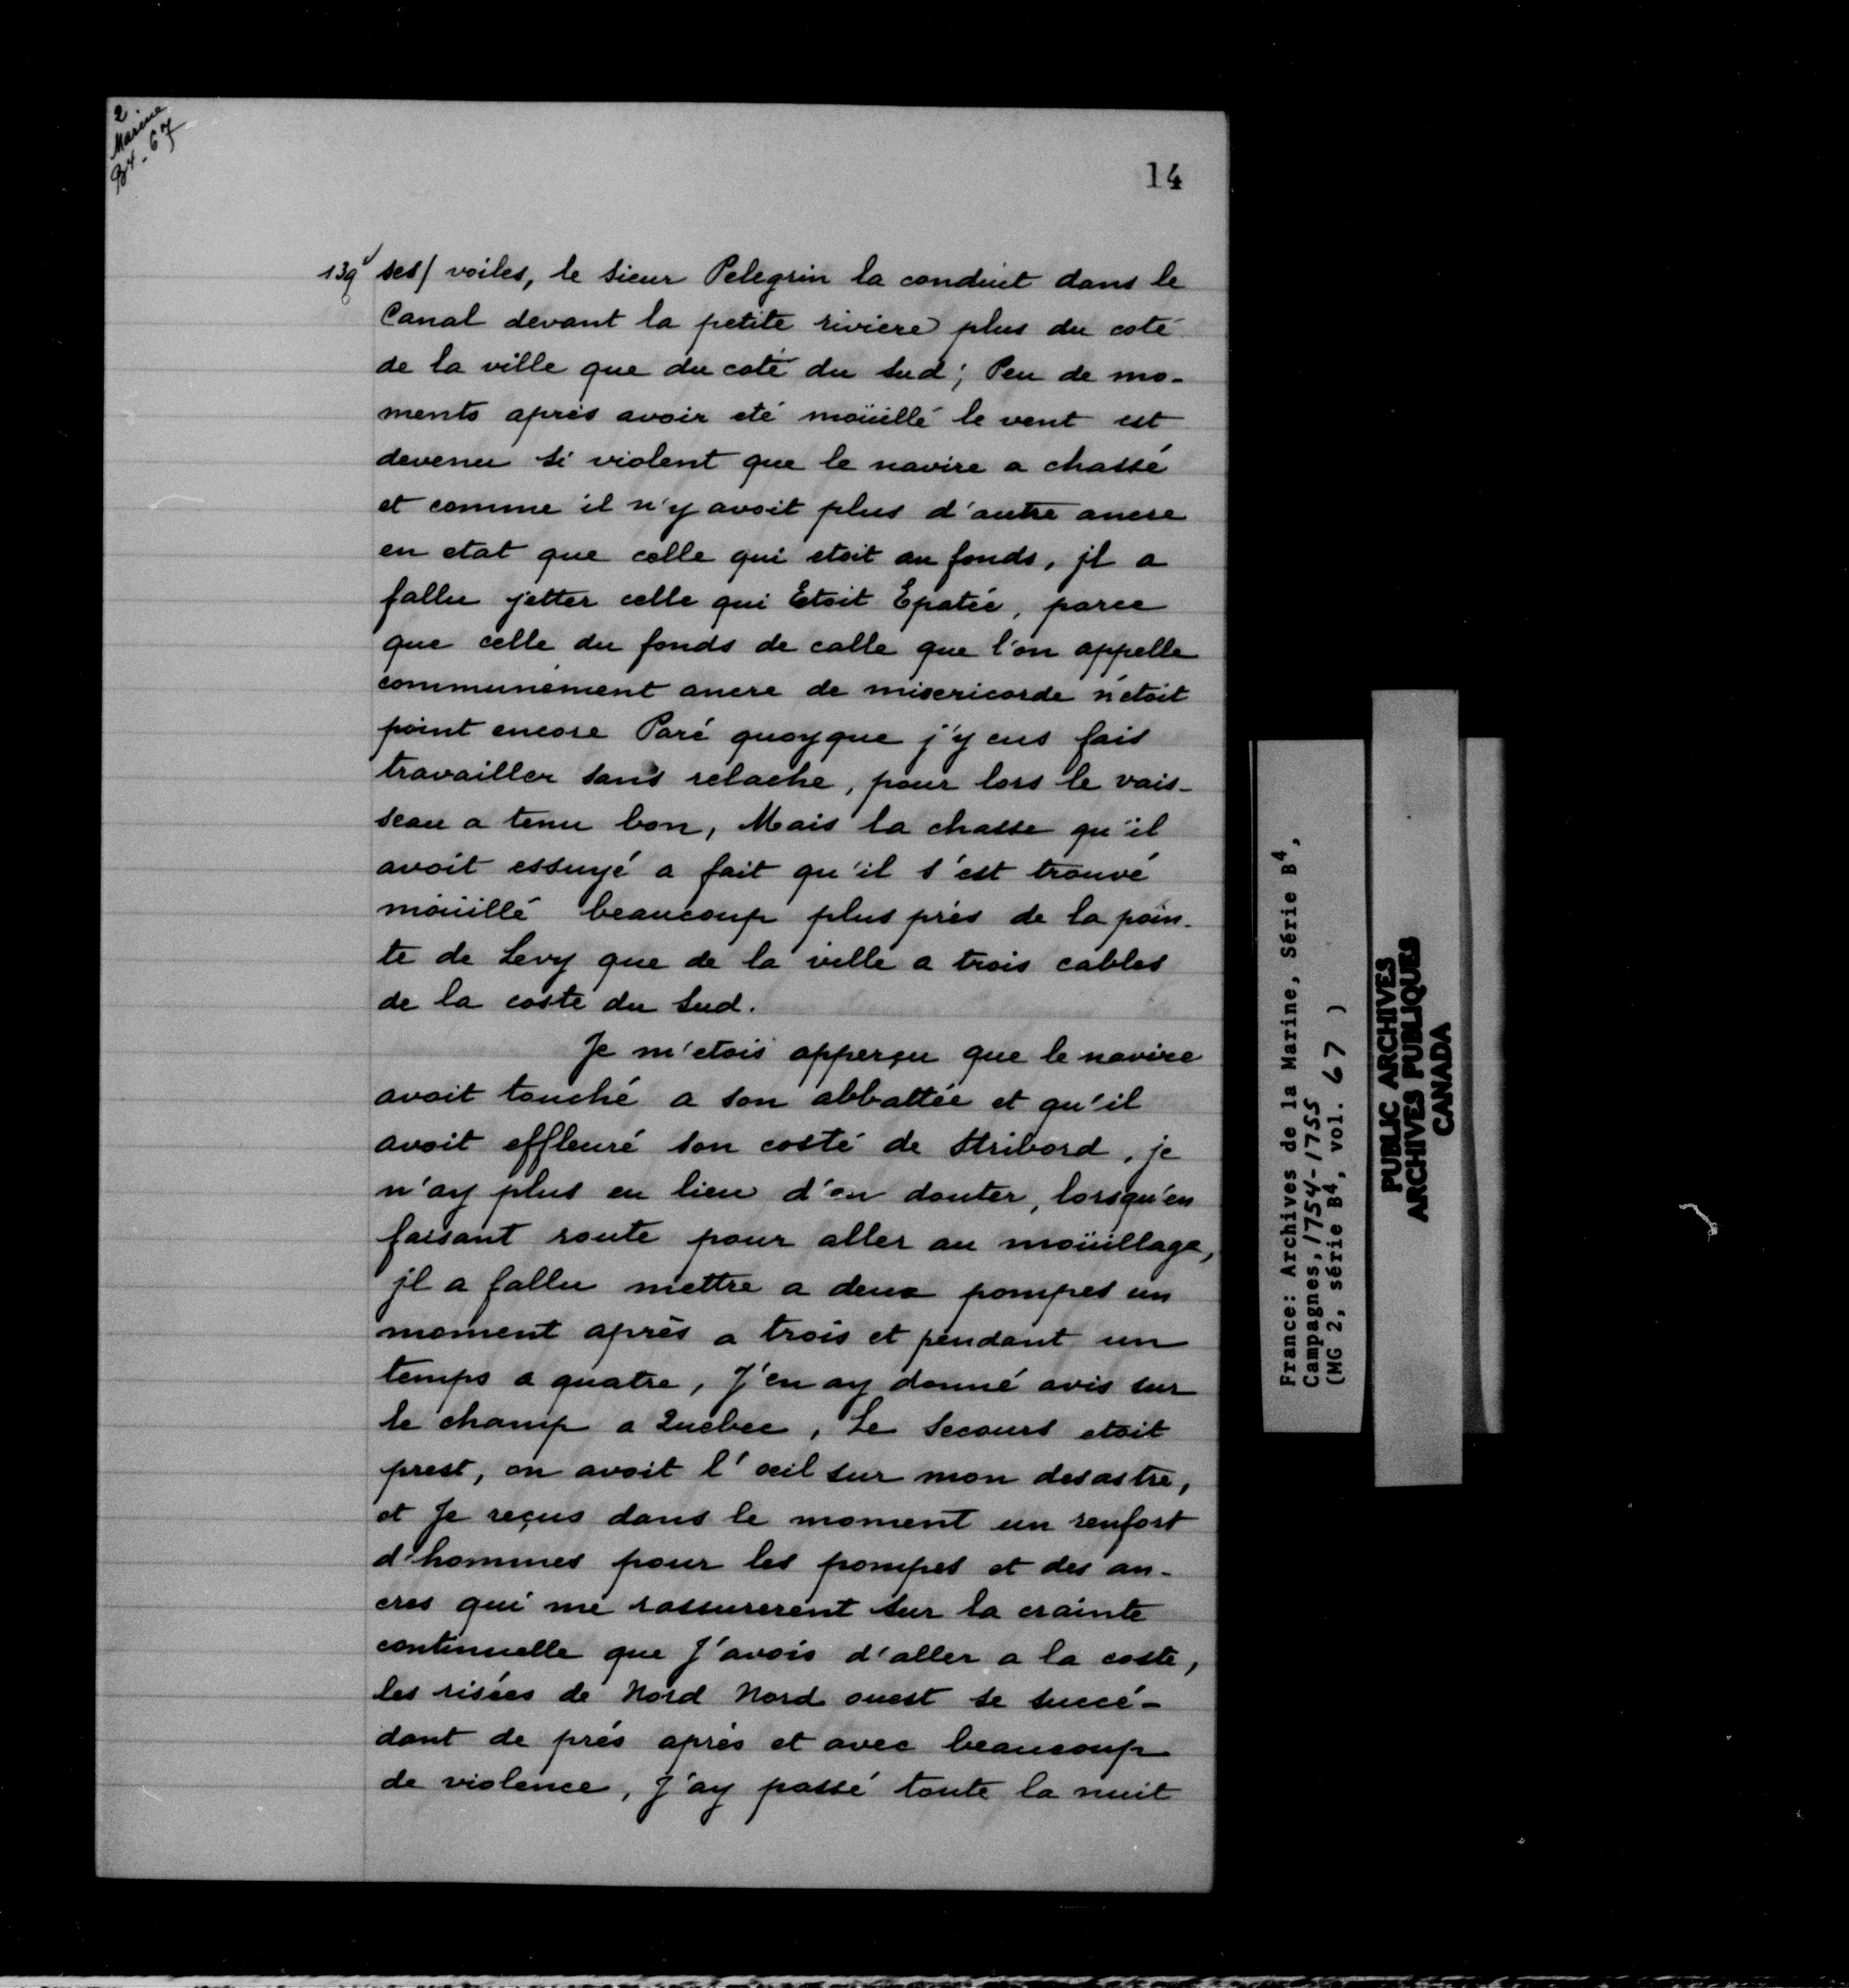 2
Marine
B4-67
14
139v ses/ voiles, le sieur Pelegrin la conduit dans le
Canal devant la petite riviere plus du coté
de la ville que du coté du sud; Peu de mo-
ments aprés avoir eté moüillé le vent est
devenu si violent que le navire a chassé
et comme il n'y avoit plus d'autre ancre
en etat que celle qui etoit au fonds, jl a
fallu jetter celle qui Etoit Epatée, parce
que celle du fonds de calle que l'on appelle
communément ancre de misericorde n'etoit
point encore Paré quoyque j'y eus fais
travailler sans relache, pour lors le vais-
seau a tenu bon, Mais la chasse qu'il
avoit essuyé a fait qu'il s'est trouvé
moüillé beaucoup plus prés de la poin-
te de Levy que de la ville a trois cables
de la coste du Sud.
Je m'etois apperçu que le navire
avoit touché a son abbattée et qu'il
avoit effleuré son costé de Stribord, je
n'ay plus eu lieu d'en douter, lorsqu'en
faisant route pour aller au moüillage,
jl a fallu mettre a deux pompes un
moment aprés a trois et pendant un
temps a quatre, J'en ay donné avis sur
le champ a Quebec, Le Secours etoit
prest, on avoit l'œil sur mon desastre,
et Je reçus dans le moment un renfort
d'hommes pour les pompes et des an-
cres qui me rassurerent sur la crainte
continuelle que J'avois d'aller a la coste,
les risées de Nord Nord ouest se succé-
dant de prés aprés et avec beaucoup
de violence, J'ay passé toute la nuit
France: Archives de la Marine, Série B4,
Campagnes, 1754-1755
(MG 2, série B4, vol. 67 )
PUBLIC ARCHIVES
ARCHIVES PUBLIQUES
CANADA